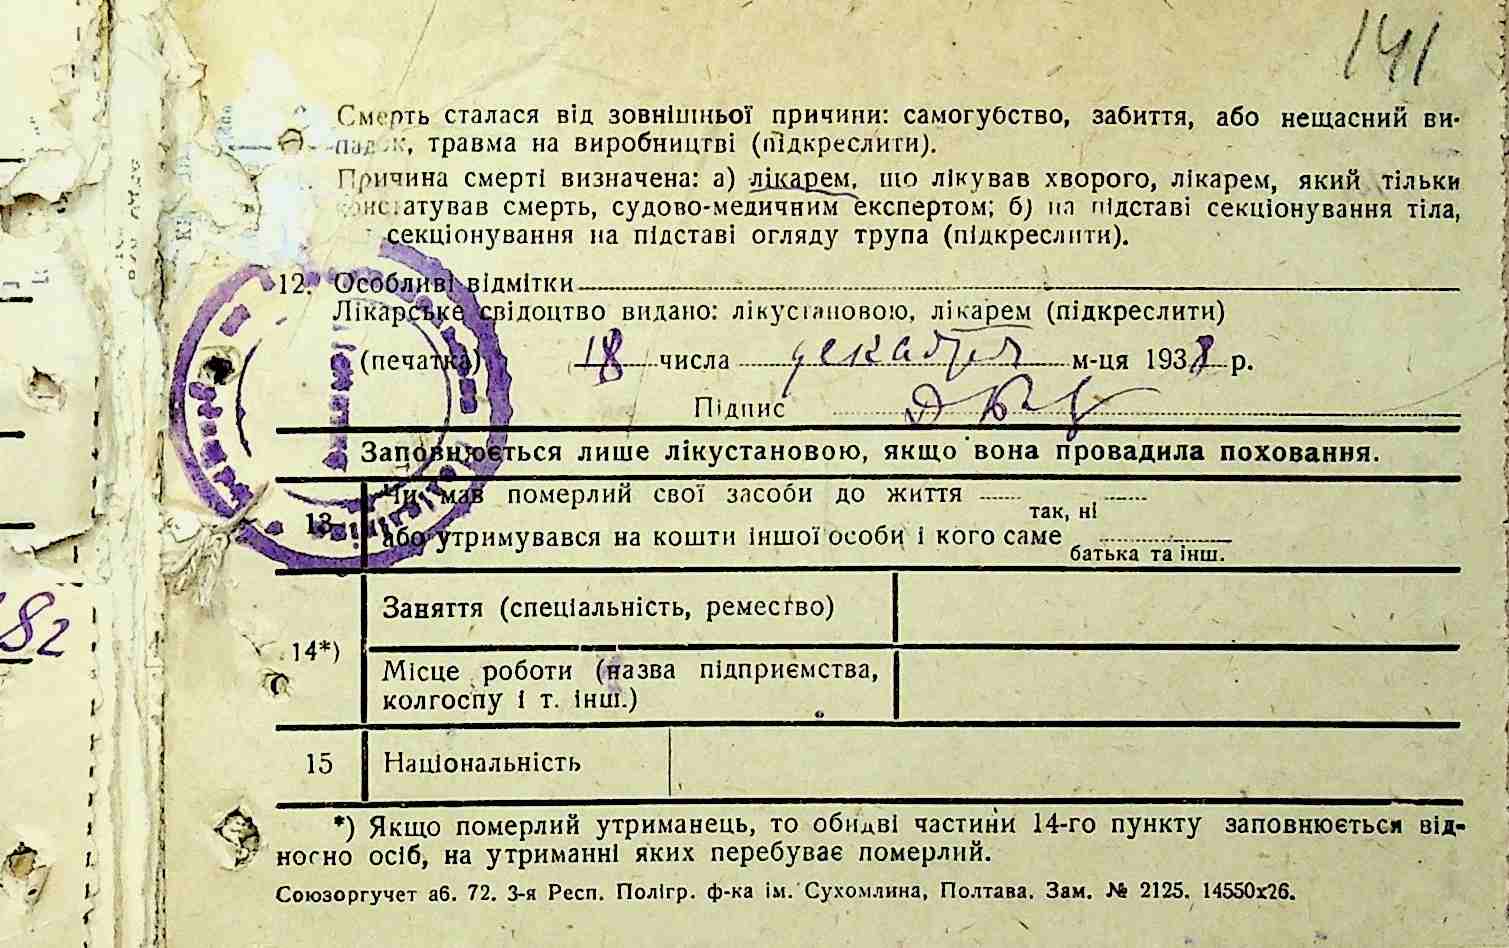 141
Смерть сталася від зовнішньої причини: самогубство, забиття, або нещасний ви-
падок, травма на виробництві (підкреслити).
Причина смерті визначена: а) лікарем, що лікував хворого, лікарем, який тільки
констатував смерть, судово-медичним експертом; б) на підставі секціонування тіла,
секціонування на підставі огляду трупа (підкреслити).
12. Особливі відмітки
Лікарське свідоцтво видано: лікустановою, лікарем (підкреслити)
(печатка) 18 числа декабря м-ця 1938 р.
Підпис
Заповнюється лише лікустановою, якщо вона провадила поховання.
13 Чи мав померлий свої засоби до життя
так, ні
або утримувався на кошти іншої особи і кого саме
батька та інш.
14*) Заняття (спеціальність, ремество)
Місце роботи (назва підприємства,
колгоспу і т. інш.)
15 Національність
*) Якщо померлий утриманець, то обидві частини 14-го пункту заповнюється від-
носно осіб, на утриманні яких перебуває померлий.
Союзоргучет аб. 72. 3-я Респ. Полігр. ф-ка ім. Сухомлина, Полтава. Зам. № 2125. 14550х26.